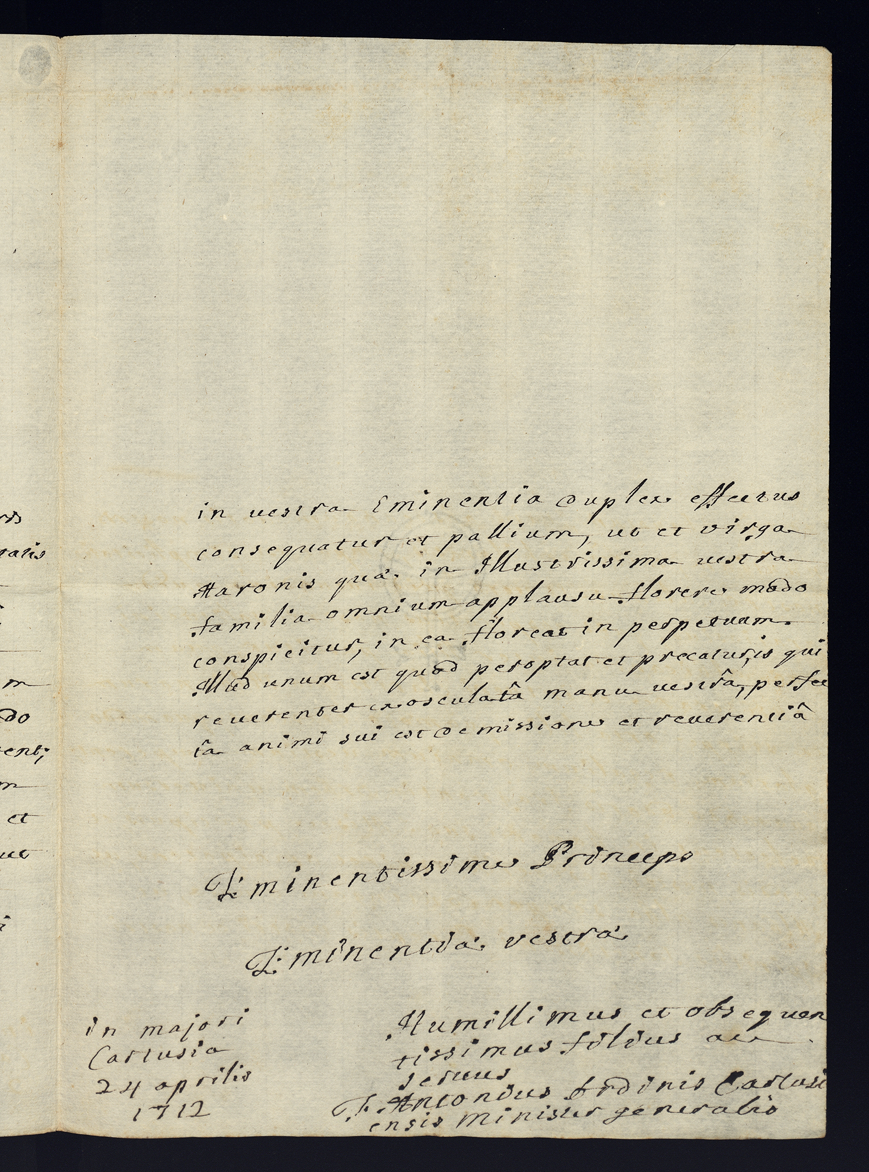 in vestra Eminentia duplex effectus
consequatur et pallium, ut et virga
Aaronis quæ in Illustrissima vestra
familia omnium applausu florere modo
conspicitur, in ea floreat in perpetuum.
Illud unum est quod peroptat et precatur, is qui
reverenter exosculatâ manu vestrâ, perfec
tâ animi sui est demissione et reverentiâ
Eminentissime Princeps
Eminentiæ vestræ
in majori
Cartusia
24 aprilis
1712
Humillimus et obsequen
tissimus filius ac
servus
F. Antonius Ordinis Cartusi
ensis Minister generalis
do
m
et
ut